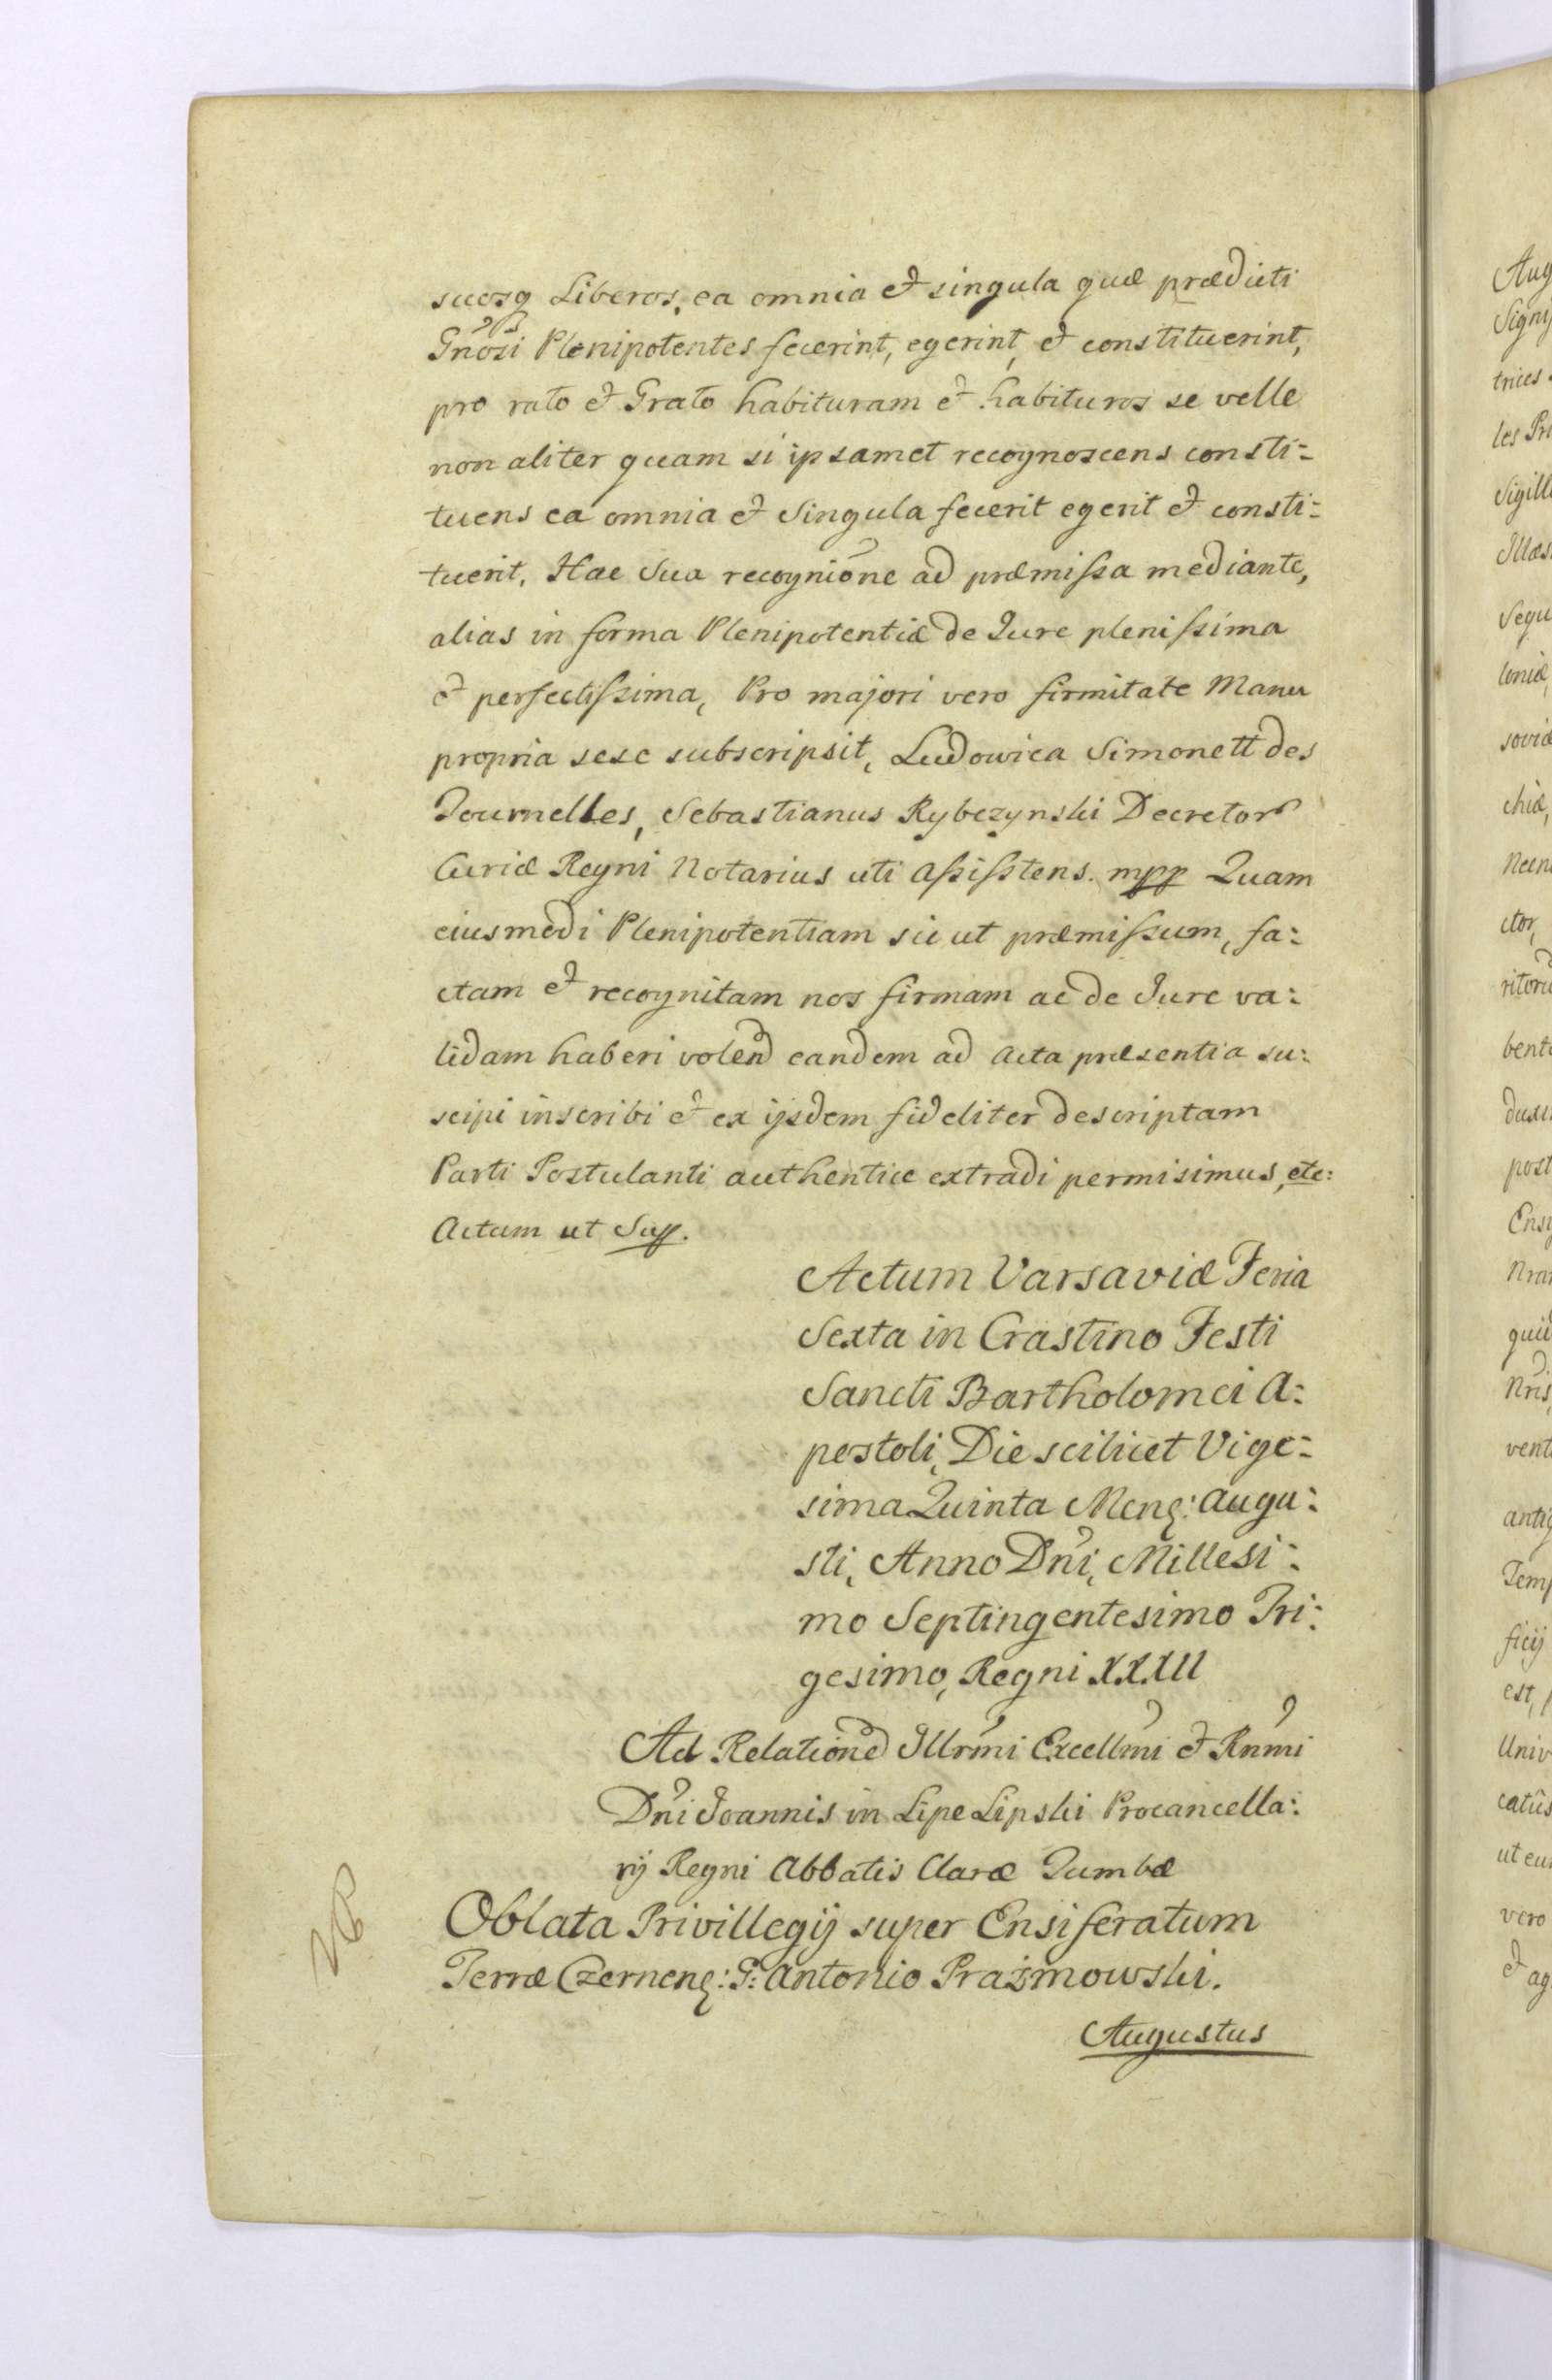 suosq Liberos, ea omnia et singula quæ prædicti
Gnosi Plenipotentes fecerint, egerint, et constituerint,
pro rato et Grato habituram et habituros se velle
non aliter quam si ipsamet recognoscens consti:
tuens ea omnia et Singula fecerit egerit et consti:
tuerit, Hac Sua recognione ad præmissa mediante,
alias in forma Plenipotentiæ de Jure plenissima
et perfectissima, Pro majori vero firmitate Manu
propria sese subscripsit, Ludowica Simonett des
Tournelles, Sebastianus Rybczynski Decretor
Curiæ Regni Notarius uti Assisstens. mpp Quam
eiusmodi Plenipotentiam sic ut præmissum, fa:
ctam et recognitam nos firmam ac de Jure va:
lidam haberi volend eandem ad Acta præsentia su:
scipi inscribi et ex ijsdem fideliter descriptam
Parti Postulanti authentice extradi permisimus, etc:
Actum ut Sup.
Actum Varsaviæ Feria
Sexta in Crastino Festi
Sancti Bartholomei A:
postoli, Die scilicet Vige:
sima Quinta Mens: Augu:
sti, Anno Dni, Millesi:
mo Septingentesimo Tri:
gesimo, Regni XXXIII
Ad Relatione Illrmi Excellmi et Rnmi
Dni Joannis in Lipe Lipski Procancella:
rij Regni Abbatis Claræ Tumbæ
Oblata Privillegij super Ensiferatum
Terræ Czernens: G: Antonio Prażmowski.
Augustus
NB